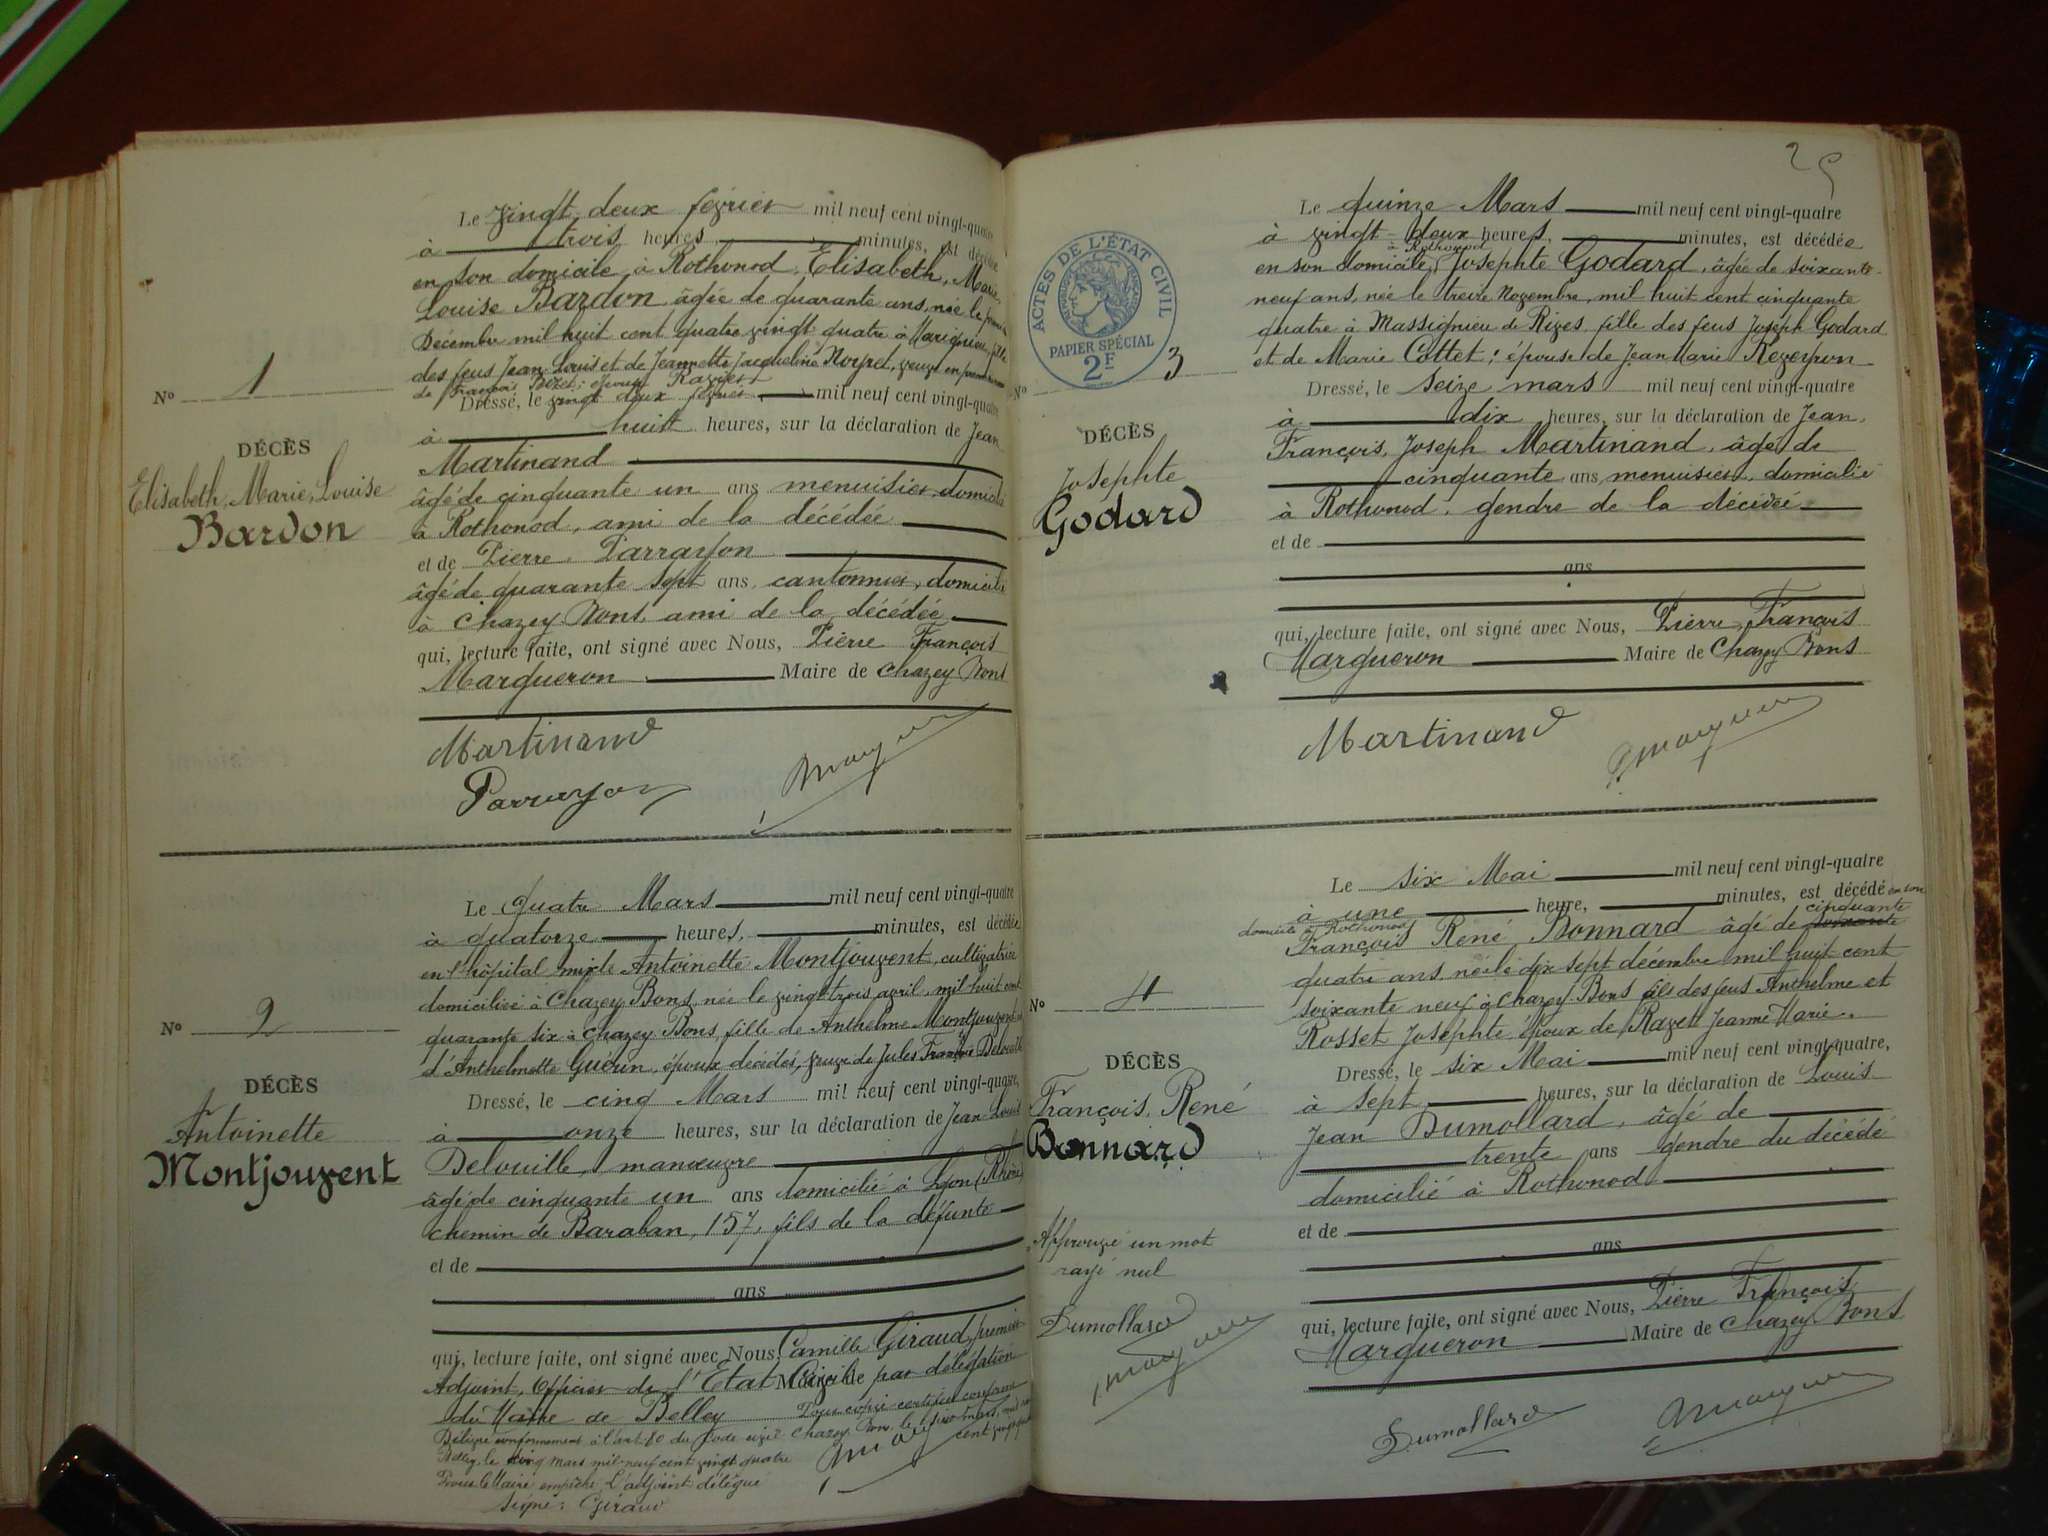 Le vingt deux février mil neuf cent vingt-quatre
à trois heures, minutes, est décédée
en son domicile à Rothonod, Elisabeth, Marie,
Louise Bardon âgée de quarante ans, née le
Décembre mil huit cent quatre vingt quatre à Marignieu, fille
des feus Jean Louis et de Jeannette Jacqueline Noyret, veuve en
de François Bizet; épouse Ravier
Dressé, le vingt deux février mil neuf cent vingt-quatre
à huit heures, sur la déclaration de Jean
Martinand
âgé de cinquante un ans menuisier, domicilié
à Rothonod, ami de la décédée
et de Pierre Parrayon
âgé de quarante sept ans, cantonnier, domicilié
à Chazey Bons, ami de la décédée
qui, lecture faite, ont signé avec Nous, Pierre François
Margueron Maire de Chazey Bons
Martinand
Parrayon
No 1
DÉCÈS
Elisabeth, Marie, Louise
Bardon
Le quatre Mars mil neuf cent vingt-quatre
à quatorze heures, minutes, est décédée
en l'hôpital mixte Antoinette Montjouvent, cultivatrice
domiciliée à Chazey Bons, née le vingt trois avril, mil huit cent
quarante six à Chazey Bons, fille de Anthelme Montjouvent et
d'Anthelmette Guérin, époux décédés, veuve de Jules François Delouille
Dressé, le cinq Mars mil neuf cent vingt-quatre,
à onze heures, sur la déclaration de Jean Louis
Delouille, manœuvre
âgé de cinquante un ans domicilié à Lyon (Rhône)
chemin de Baraban, 157, fils de la défunte
et de
ans
qui, lecture faite, ont signé avec Nous, Camille Giraud, premier
Adjoint, Officier de l'Etat Civil Maire de par délégation
du Maire de Belley
Pour copie certifiée conforme
Chazey Bons le six mars, mil neuf
cent vingt quatre
Délivré conformément à l'art. 80 du Code civil
Belley, le cinq mars mil neuf cent vingt quatre
Pour le Maire empêché, l'adjoint délégué
signé: Giraud
No 2
DÉCÈS
Antoinette
Montjouvent
25
ACTES DE L'ÉTAT CIVIL
PAPIER SPÉCIAL
2F
Le quinze Mars mil neuf cent vingt-quatre
à vingt-deux heures, minutes, est décédée
à Rothonod
en son domicile, Josephte Godard, âgée de soixante-
neuf ans, née le treize Novembre, mil huit cent cinquante
quatre à Massignieu de Rives, fille des feus Joseph Godard
et de Marie Cottet; épouse de Jean Marie Reveyron
Dressé, le seize mars mil neuf cent vingt-quatre
à dix heures, sur la déclaration de Jean,
François, Joseph Martinand, âgé de
cinquante ans, menuisier, domicilié
à Rothonod, gendre de la décédée
et de
ans
qui, lecture faite, ont signé avec Nous, Pierre, François
Margueron Maire de Chazey Bons
Martinand
No 3
DÉCÈS
Josephte
Godard
Le six Mai mil neuf cent vingt-quatre
à une heure, minutes, est décédé en son
domicile à Rothonod cinquante
François René Bonnard âgé de soixante
quatre ans né le dix sept décembre mil huit cent
soixante neuf à Chazey Bons fils des feus Anthelme et
Rosset Josephte époux de Ravet Jeanne Marie.
Dressé, le six Mai mil neuf cent vingt-quatre,
à sept heures, sur la déclaration de Louis
Jean Dumollard, âgé de
trente ans gendre du décédé
domicilié à Rothonod
et de
ans
qui, lecture faite, ont signé avec Nous, Pierre François
Margueron Maire de Chazey Bons
Dumollard
No 4
DÉCÈS
François, René
Bonnard
Approuvé un mot
rayé nul
Dumollard